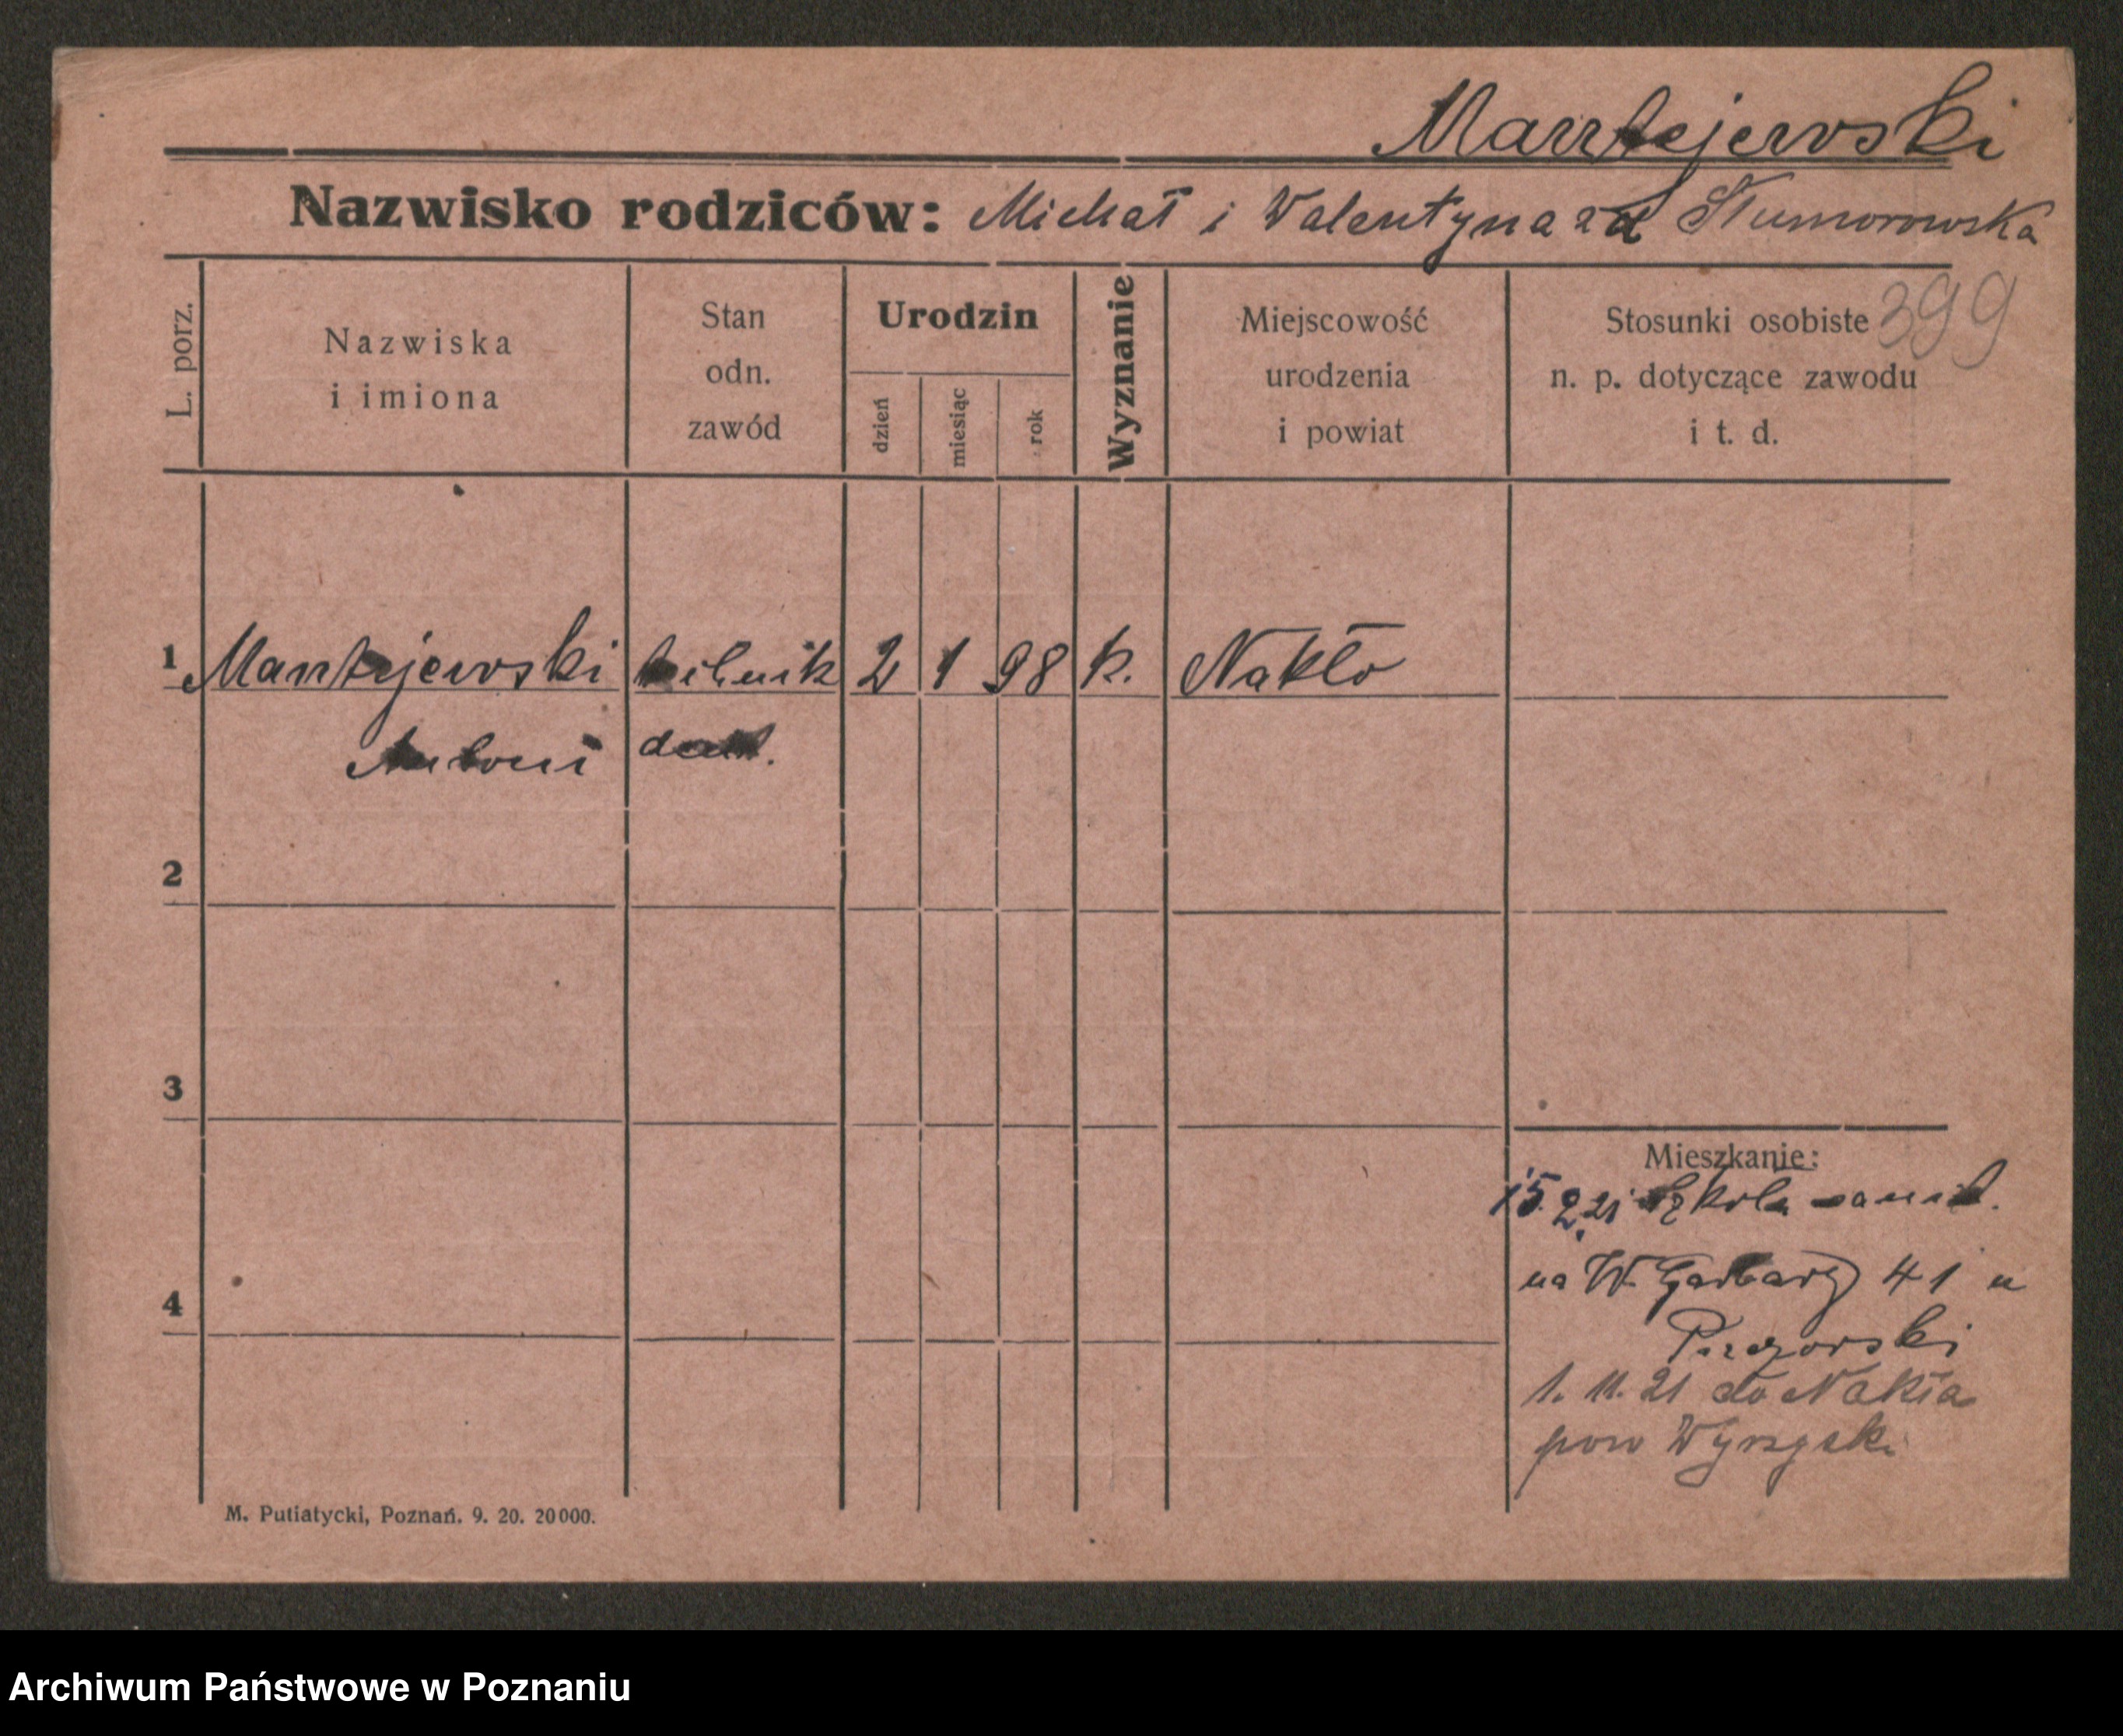 Mantejewski
Nazwisko rodziców: Michał i Walentyna
399
L. porz.
Nazwiska
i imiona
Stan
odn.
zawód
Urodzin
dzień
miesiąc
rok
Wyznanie
Miejscowość
urodzenia
i powiat
Stosunki osobiste
n. p. dotyczące zawodu
i t. d.
1 Mantejewski technik 2 1 98 k. Nakło
Antoni dent.
2
3
Mieszkanie:
15.2.21 Szkoła sanit.
na W. Garbary 41 u
4
1. 11. 21 do Nakła
pow Wyrzyski
M. Putiatycki, Poznań. 9. 20. 20000.
Archiwum Państwowe w Poznaniu